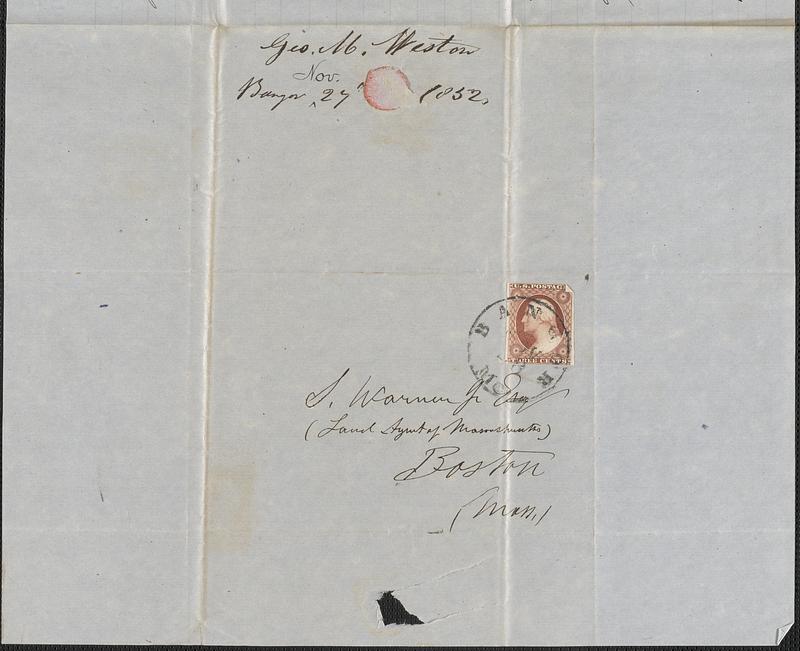 Geo. M. Weston
Nov.
Bangor ^ 27 1852.
U.S. POSTAGE
THREE CENTS
BANGOR
S. Warner Jr Esq
(Land Agent of Massachusetts)
Boston
(Mass.)